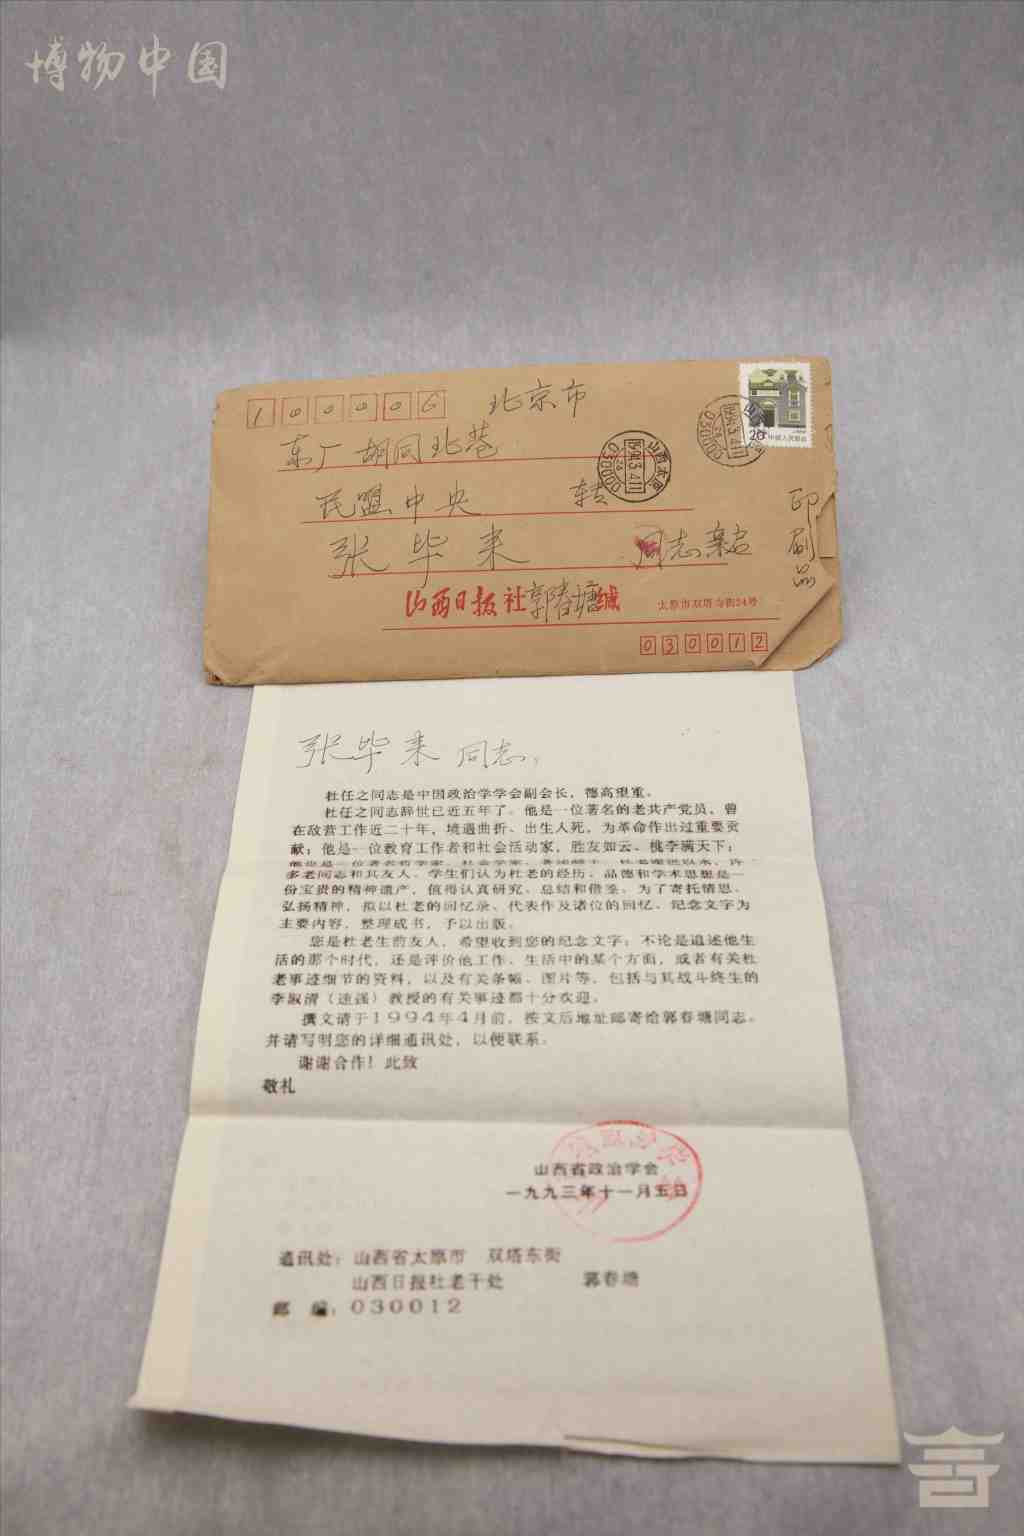 博物中国
100006 北京市
东厂胡同北巷
民盟中央 转
张毕来 同志亲启
印刷品
20 中国人民邮政
山西太原
1994.3.4.11
030000
山西日报社郭春塘缄 太原市双塔寺街24号
030012
张毕来同志：
杜任之同志是中国政治学学会副会长，德高望重。
杜任之同志辞世已近五年了。他是一位著名的老共产党员，曾
在敌营工作近二十年，境遇曲折、出生入死，为革命作出过重要贡
献；他是一位教育工作者和社会活动家，胜友如云、桃李满天下；
他也是一位著名哲学家、社会学家、著述
多老同志和其友人、学生们认为杜老的经历、品德和学术思想是一
份宝贵的精神遗产，值得认真研究、总结和借鉴。为了寄托情思、
弘扬精神，拟以杜老的回忆录、代表作及诸位的回忆、纪念文字为
主要内容，整理成书，予以出版。
您是杜老生前友人，希望收到您的纪念文字；不论是追述他生
活的那个时代，还是评价他工作、生活中的某个方面，或者有关杜
老事迹细节的资料，以及有关条幅、图片等，包括与其战斗终生的
李淑清（速强）教授的有关事迹都十分欢迎。
撰文请于1994年4月前，按文后地址邮寄给郭春塘同志。
并请写明您的详细通讯处，以便联系。
谢谢合作！此致
敬礼
山西省政治学会
一九九三年十一月五日
通讯处：山西省太原市 双塔东街
山西日报社老干处 郭春塘
邮 编：030012